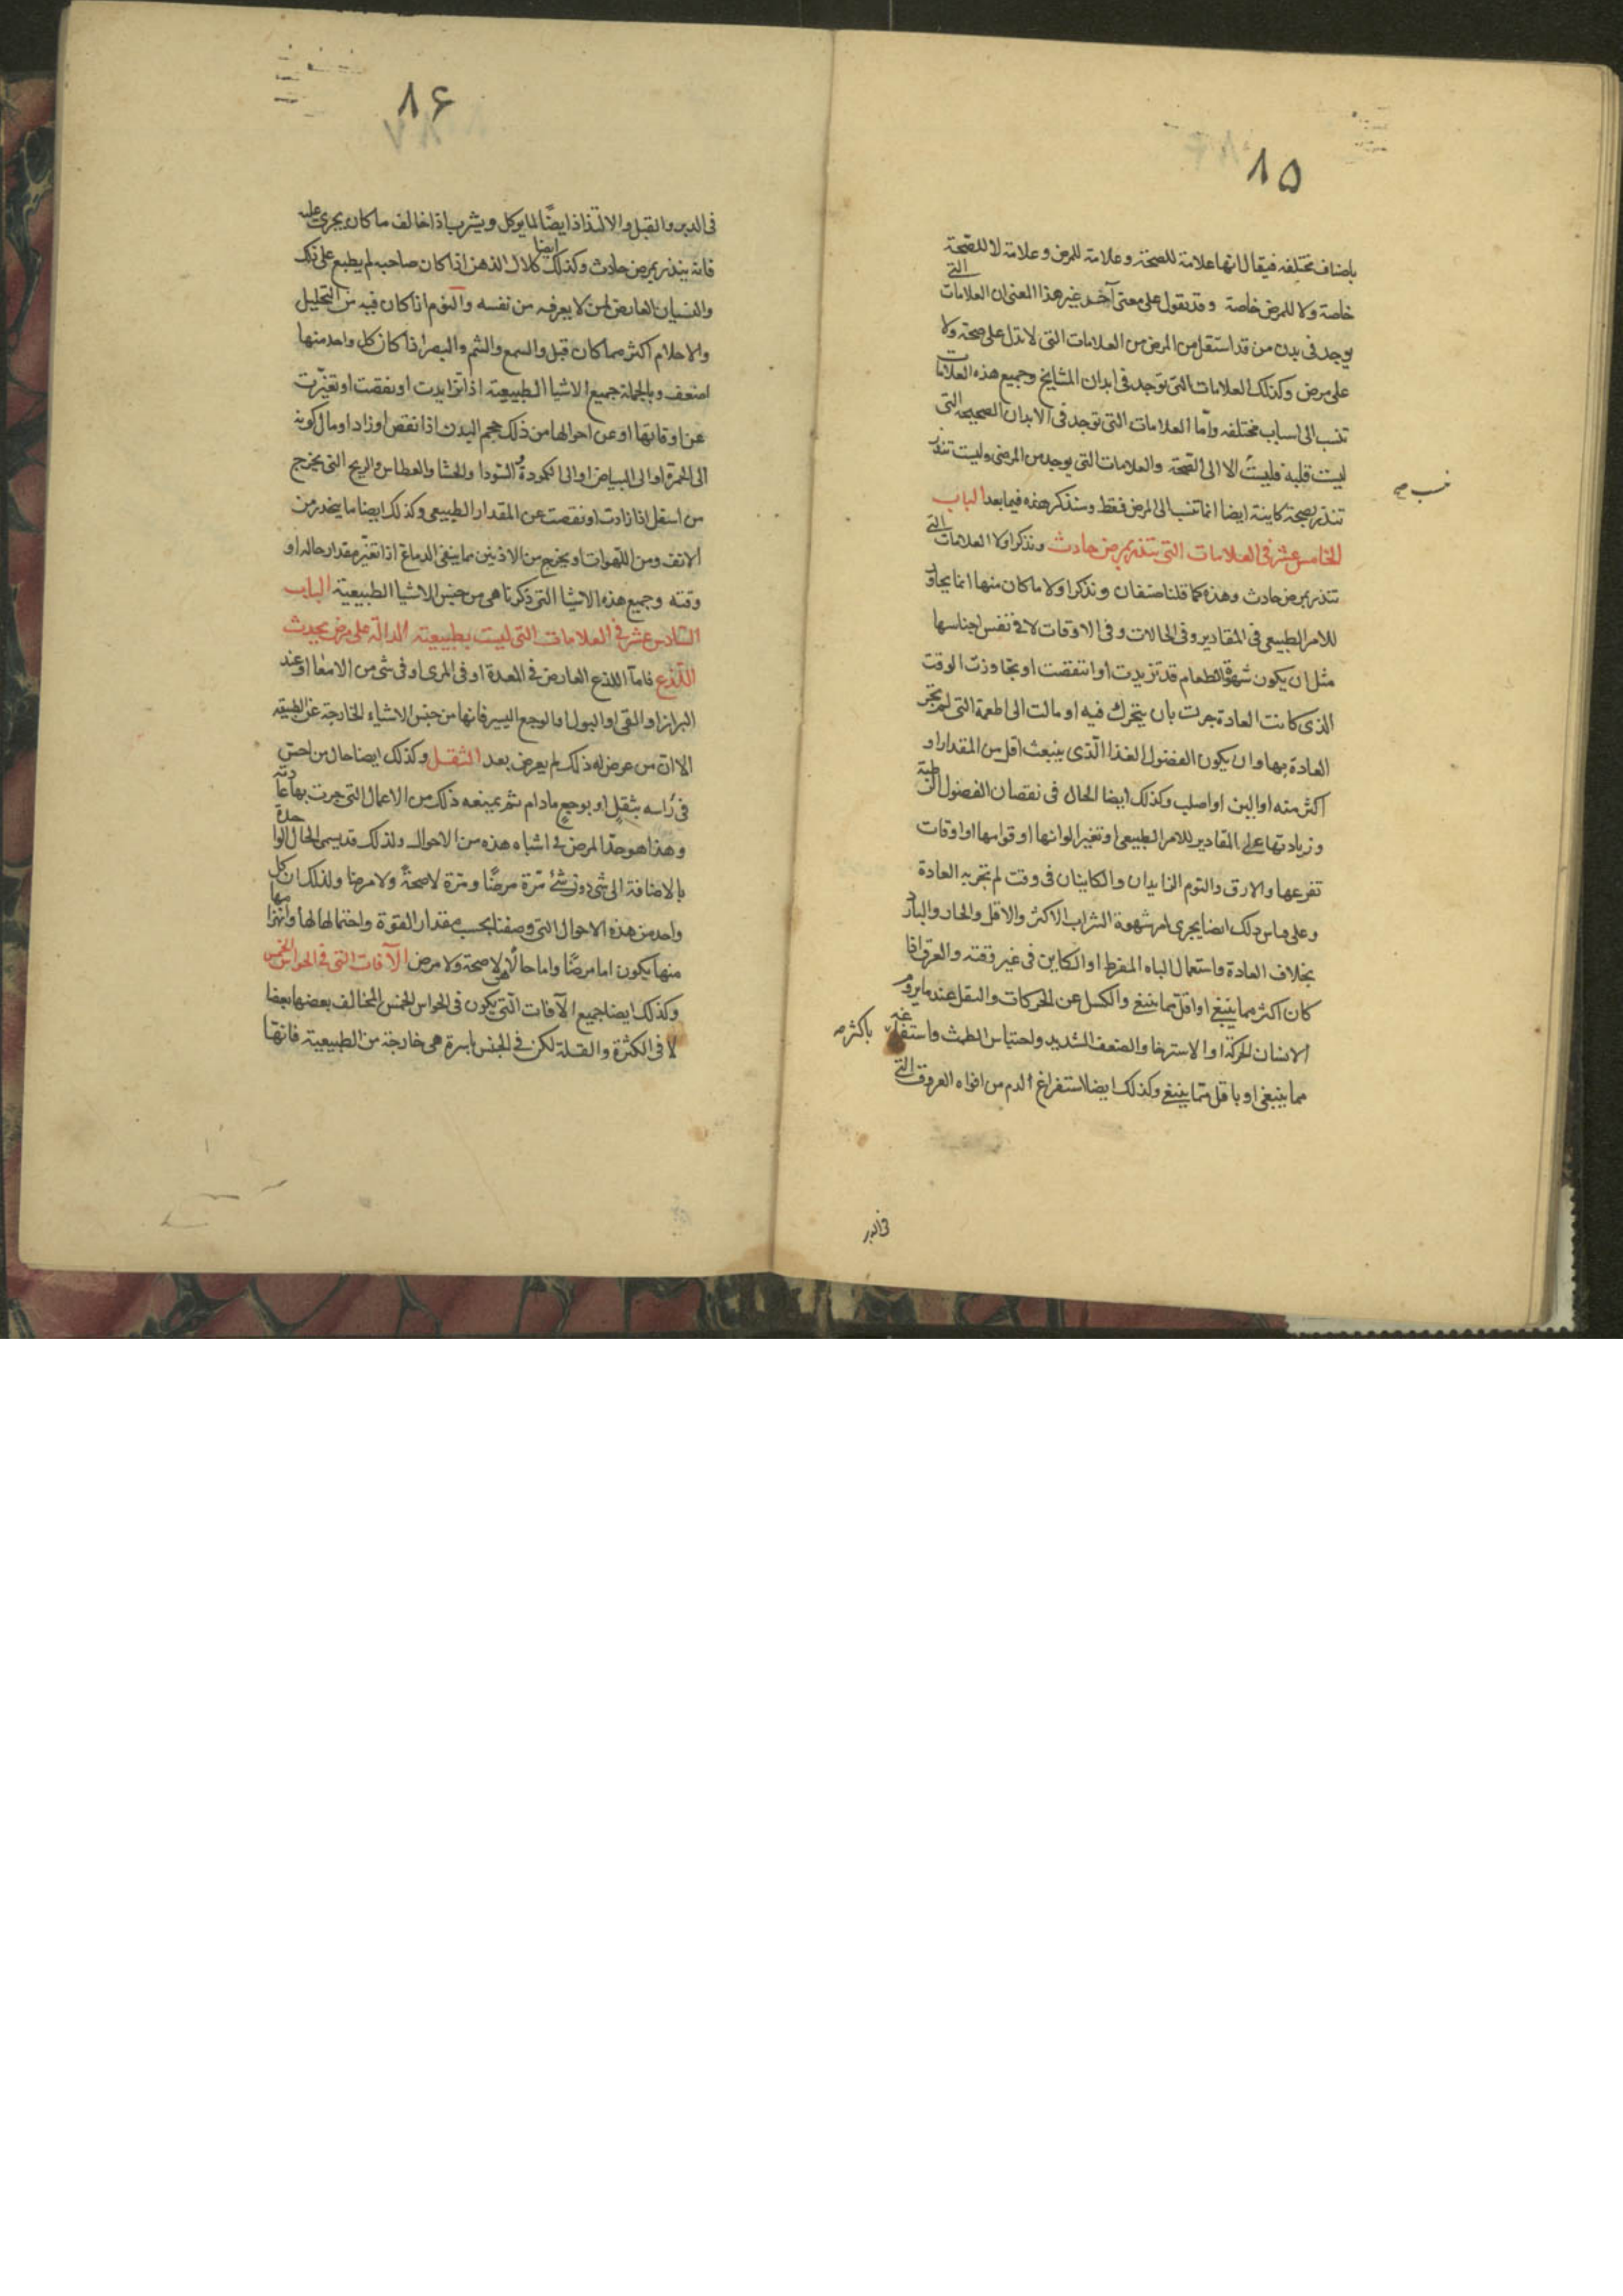 ٨٥
باصناف مختلفه فيقال انها علامة للصحة وعلامة للمرض وعلامة لا للصحة
خاصة ولا للمرض خاصة وقد نقول على معنى آخر غير هذا المعنى ان العلامات التى
يوجد فى بدن من قد استقل من المرض من العلامات التى لا تدل على صحة ولا
على مرض وكذلك العلامات التى توجد فى ابدان المشايخ وجميع هذه العلامات
تنسب الى اسباب مختلفه وامّا العلامات التى توجد فى الابدان الصحيحه التى
ليست قلبه فليست الا الى الصّحة والعلامات التى يوجد من المرضى وليست تنذر
تنذر بصحة كاينة ايضا انما تنسب الى المرض فقط وسنذكر هذه فيما بعد الباب
الخامس عشر فى العلامات التى تنذر بمرض حادث ونذكر اولا العلامات التى
تنذر بمرض حادث وهذه كما قلنا صنفان ونذكر اولا ما كان منها انما يجاوز
للامر الطبيعى فى المقادير وفى الحالات وفى الاوقات لا فى نفس اجناسها
مثل ان يكون شهوة الطعام قد تزيدت او انتقصت او تجاوزت الوقت
الذى كانت العادة جرت بان يتحرك فيه او مالت الى اطعمة التى لم تجر
العادة بها وان يكون الفضول الغذا الّذى ينبعث اقل من المقدار او
اكثر منه او الين او اصلب وكذلك ايضا الحال فى نقصان الفضول الرطبة
وزيادتها على المقادير للامر الطبيعى او تغير الوانها او قوامها او اوقات
تفرعها والارق والنوم الزايدان والكاينان فى وقت لم تجر به العادة
وعلى قياس ذلك ايضا يجرى امر شهوة الشراب الاكثر والاقل والحار والبارد
بخلاف العادة واستعمال الباه المفرط او الكاين فى غير وقته والعرق اذا
كان اكثر مما ينبغى او اقل مما ينبغى والكسل عن الحركات والثقل عند ما يروم
الانسان الحركة او الاسترخا والضعف الشديد واحتباس الطمث واستفراغه باكثر
مما ينبغى او باقل مما ينبغى وكذلك ايضا استفراغ الدم من افواه العروق التى
فى الدبر
٨۶
فى الدبر والقبل والالتذاذ ايضًا لما يوكل ويشرب اذا خالف ما كان يجرى عليه
فانه ينذر بمرض حادث وكذلك ايضا كلال الذهن اذا كان صاحبه لم يطبع على ذلك
والنسيان العارض لمن لا يعرفه من نفسه والنوم اذا كان فيه من التحليل
والاحلام اكثر مما كان قبل والسمع والشم والبصر اذا كان كل واحد منها
اضعف وبالجملة جميع الاشيا الطبيعيه اذا تزايدت او نقصت او تغيّرت
عن اوقاتها او عن احوالها من ذلك حجم البدن اذا نقص او زاد او مال لونه
الى الحمرة او الى البياض او الى الكمودة والسودا والجشا والعطاس والريح التى يخرج
من اسفل اذا زادت او نقصت عن المقدار الطبيعى وكذلك ايضا ما ينحدر من
الانف ومن اللهوات او يخرج من الاذنين مما ينقى الدماغ اذا تغيّر مقدار حاله او
وقته وجميع هذه الاشيا التى ذكرناها هى من جنس الاشيا الطبيعية الباب
السّادس عشر فى العلامات التى ليست بطبيعيته الدالّة على مرض يحدث
اللّذع فامّا اللذع العارض فى المعدة او فى المرى او فى شى من الامعا او عند
البراز او القى او البول او الوجع اليسير فانها من جنس الاشياء الخارجة عن الطبيعه
الا ان من عرض له ذلك لم يعرض بعد الثقل وكذلك ايضا حال من احس
فى راسه بثقلٍ او بوجع ما دام ثم يمنعه ذلك من الاعمال التى جرت بها عادته
وهذا هو حدّ المرض فى اشباه هذه من الاحوال ولذلك قد يسمى الحال الواحدة
بالاضافة الى شى دون شئ مرّة مرضًا ومرّة لا صحةً ولا مرضا ولذلك ان كل
واحد من هذه الاحوال التى وصفنا بحسب مقدار القوة واحتمالها لها وانهزامها
منها يكون اما مرضًا واما حالًا لا صحة ولا مرض الآفات التى فى الحواس الخمس
وكذلك ايضا جميع الآفات الّتى يكون فى الحواس الخمس المخالف بعضها بعضا
لا فى الكثرة والقلة لكن فى الجنس باسره هى خارجة من الطبيعية فانها